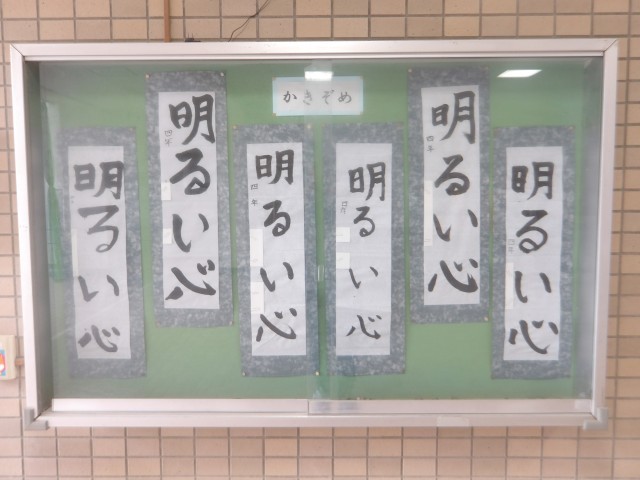 かきぞめ
明るい心
四年
明るい心
四年
明るい心
四年
明るい心
四年
明るい心
四年
明るい心